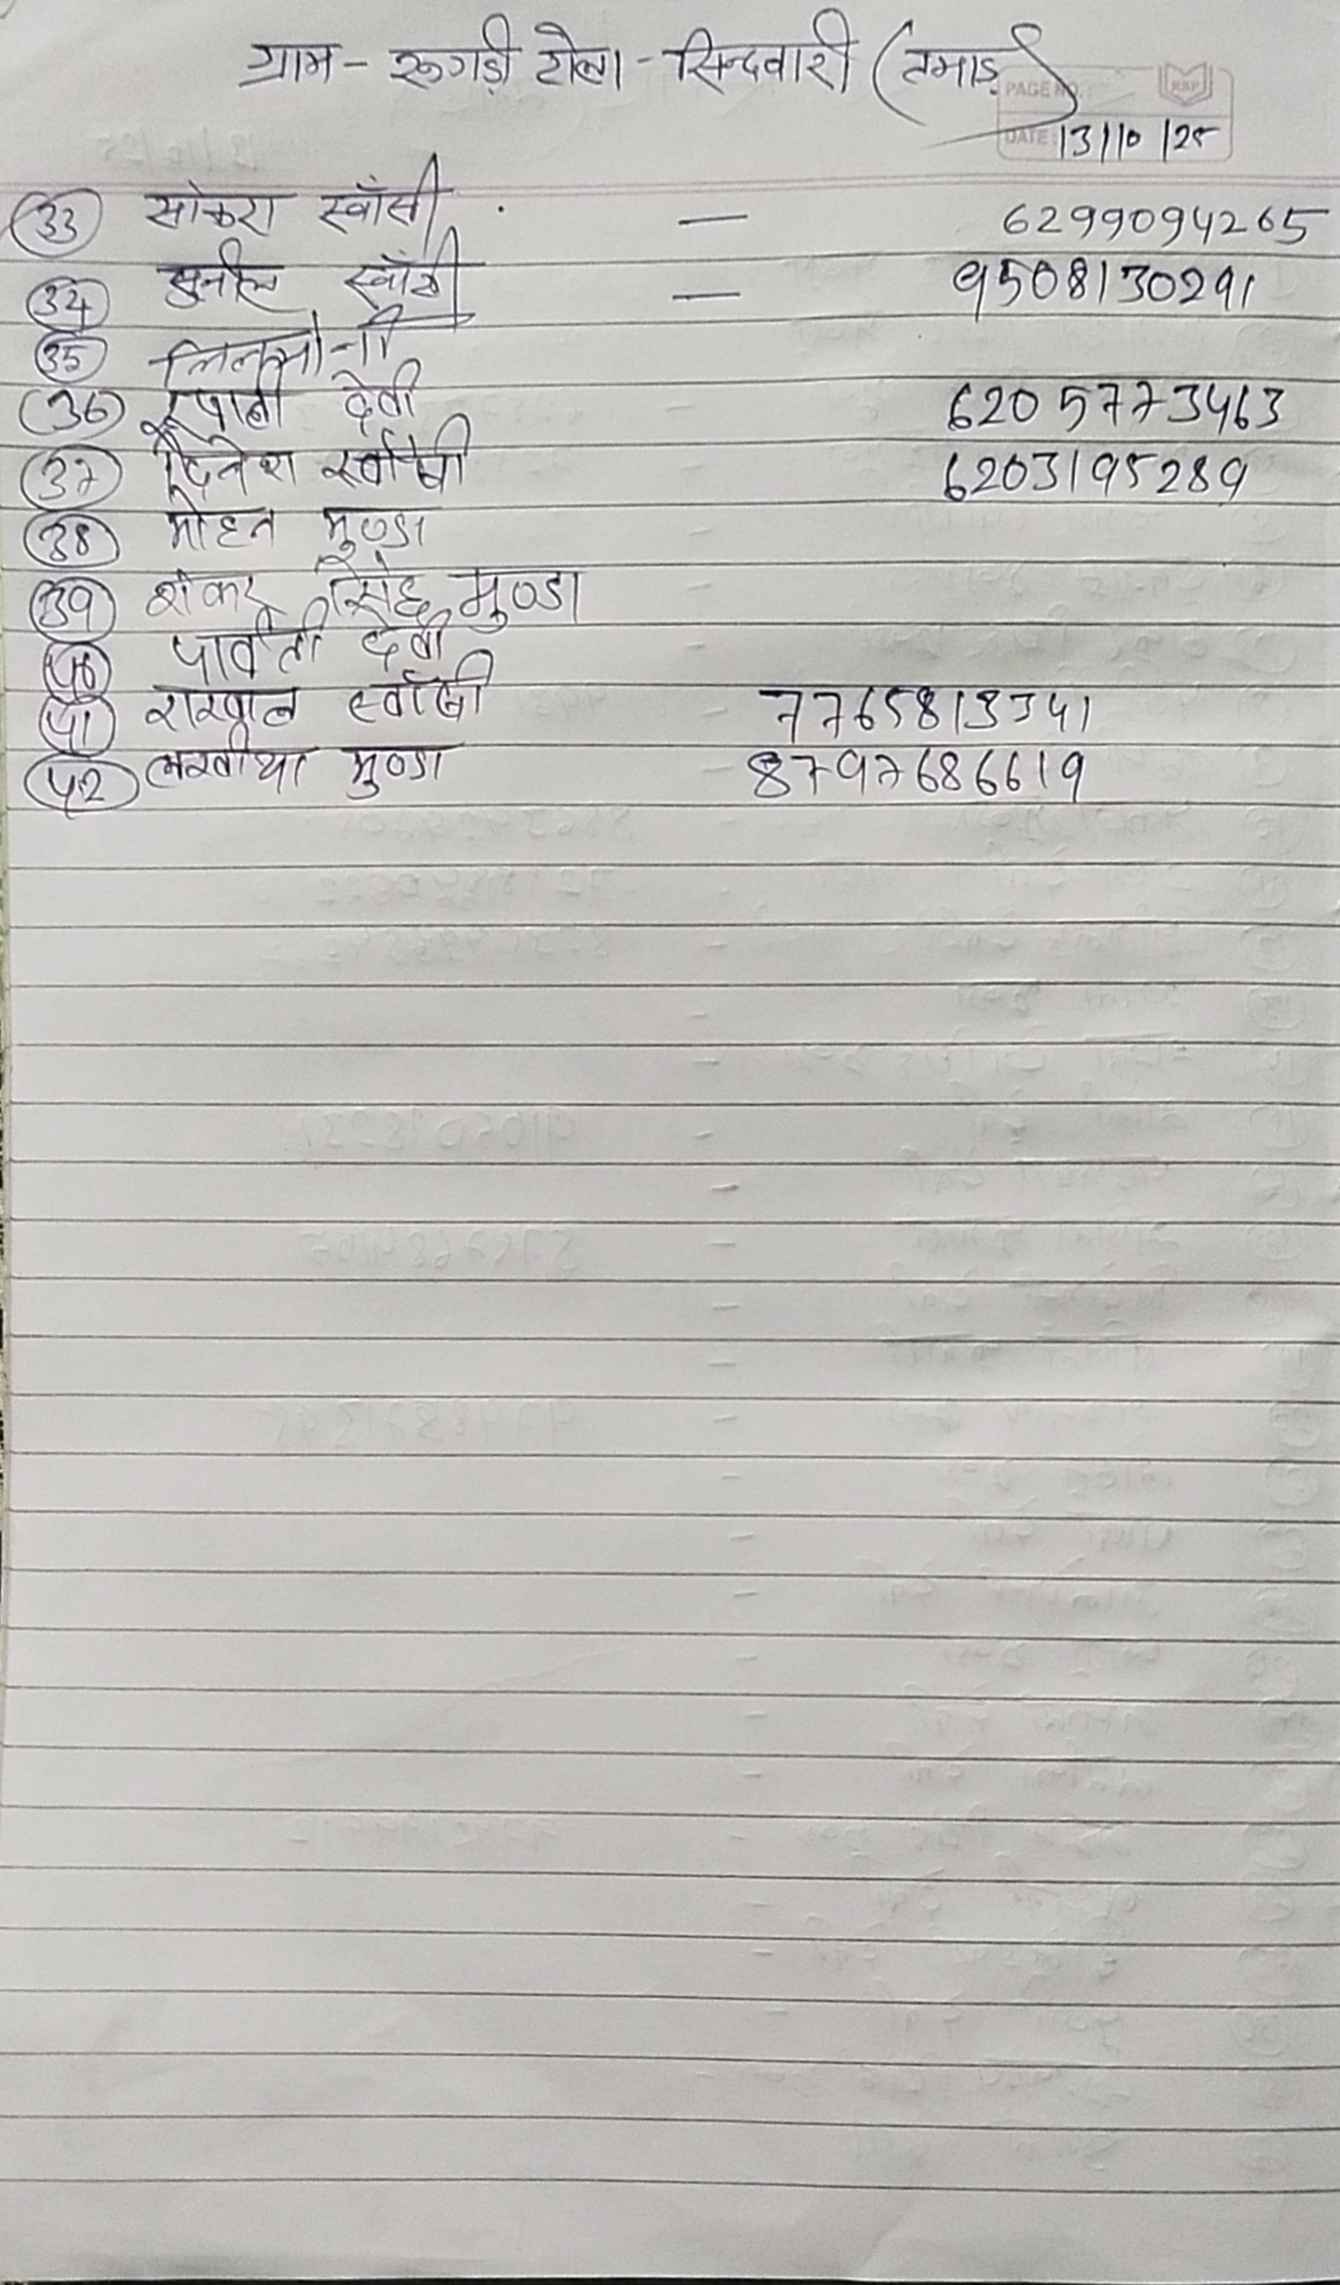 ग्राम - रुगड़ी टोला - सिन्दवारी (तमाड़)
PAGE NO.
DATE: 13/10/25
33 सोमरा स्वाँसी — 6299094265
34 सुनील स्वाँसी — 9508130291
35
36 रूपानी देवी 6205773463
37 दिनेश स्वाँसी 6203195289
38 मोहन मुण्डा
39 शंकर सिंह मुण्डा
40 पार्वती देवी
41 राखाल स्वाँसी 7765813341
42 लखीया मुण्डा 8797686619